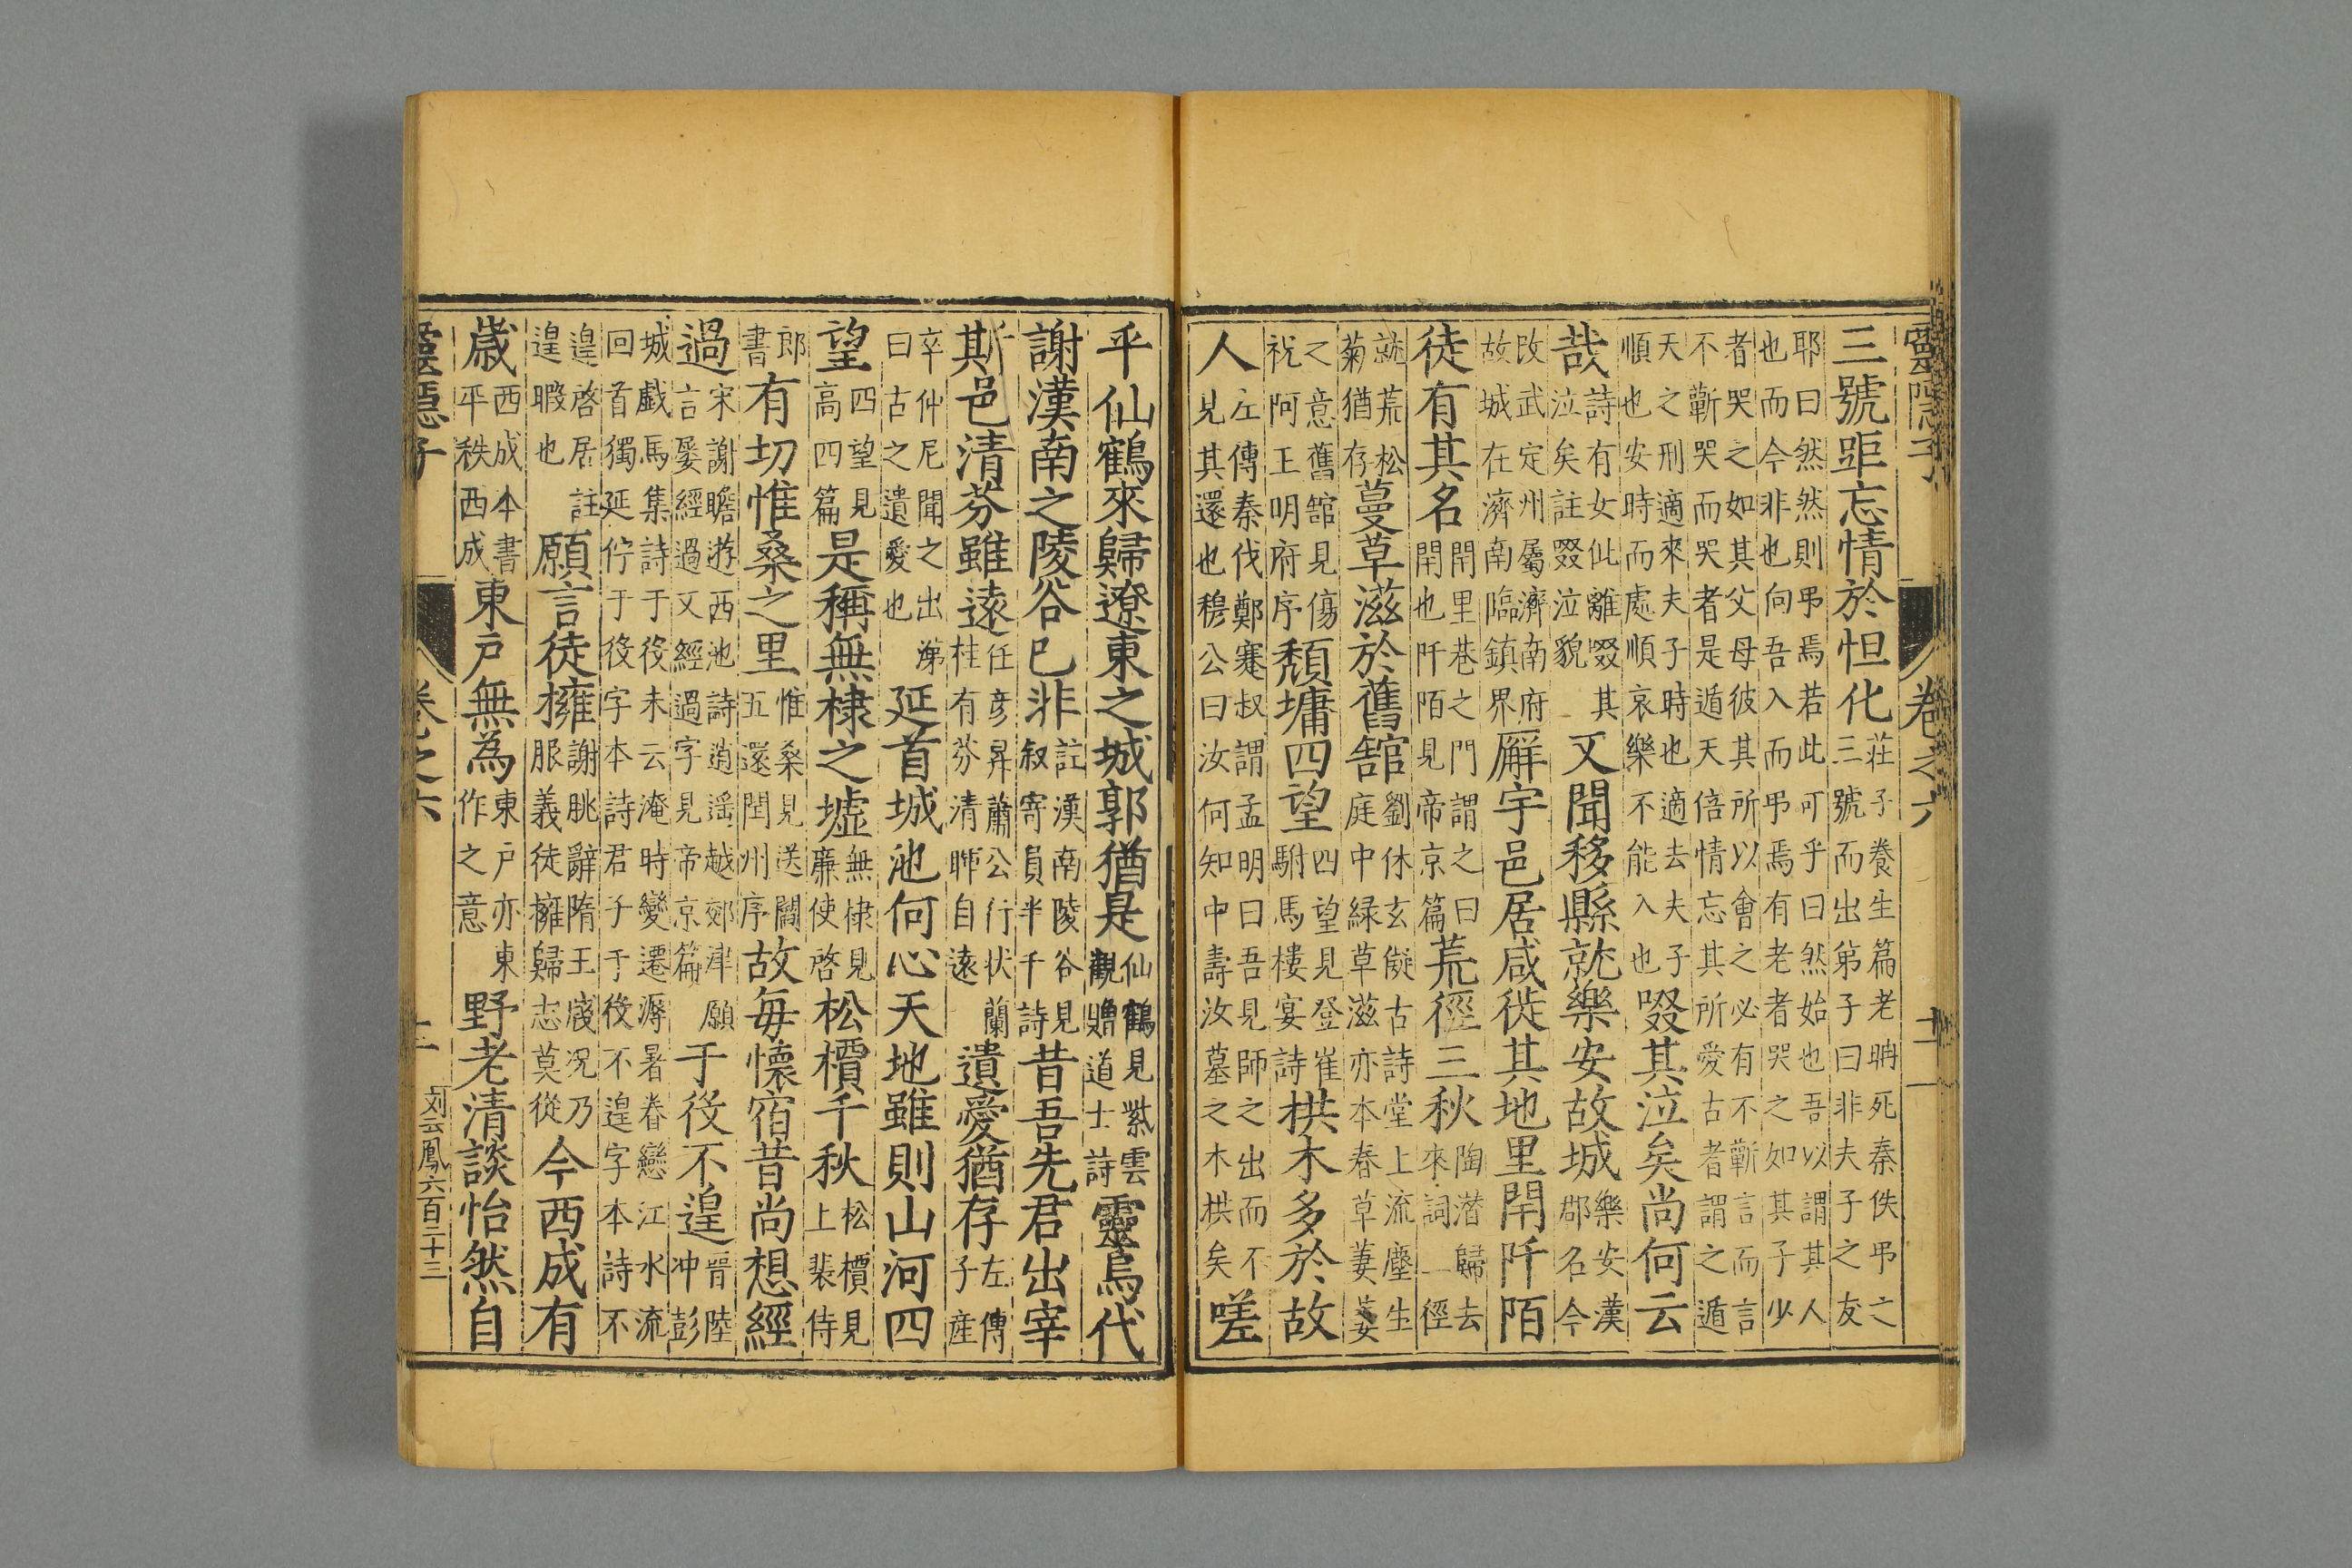 靈隱子 卷之六 十一
三號詎忘情於怛化莊子養生篇老聃死秦佚弔之三號而出弟子曰非夫子之友
耶曰然然則弔焉若此可乎曰然始也吾以謂其人也而今非也向吾入而弔焉有老者哭之如其子少
者哭之如其父母彼其所以會之必有不蘄言而言不蘄哭而哭者是遁天倍情忘其所愛古者謂之遁
天之刑適來夫子時也適去夫子順也安時而處順哀樂不能入也啜其泣矣尚何云
哉詩有女仳離啜其泣矣註啜泣貌又聞移縣就樂安故城樂安漢郡名今
改武定州屬濟南府故城在濟南臨鎮界廨宇邑居咸徙其地里閈阡陌
徒有其名閈里巷之門謂之曰閈也阡陌見帝京篇荒徑三秋陶潛歸去來詞一徑
就荒松菊猶存蔓草滋於舊舘劉休玄儗古詩堂上流塵生庭中緑草滋亦本春草萋萋
之意舊舘見傷祝阿王明府序頹墉四望四望見登崔駙馬樓宴詩栱木多於故
人左傳秦伐鄭蹇叔謂孟明曰吾見師之出而不見其還也穆公曰汝何知中壽汝墓之木栱矣嗟
乎仙鶴來歸遼東之城郭猶是仙鶴見紫雲觀贈道士詩靈烏代
謝漢南之陵谷已非註漢南陵谷見叙寄員半千詩昔吾先君出宰
斯邑清芬雖遠任彦昇蕭公行状蘭桂有芬清暉自遠遺愛猶存左傳子産
卒仲尼聞之出涕曰古之遺愛也延首城池何心天地雖則山河四
望四望見高四篇是稱無棣之墟無棣見廉使啓松檟千秋松檟見上裴侍
郎書有切惟桑之里惟桑見送閻五還閏州序故毎懷宿昔尚想經
過宋謝瞻遊西池詩逍遥越郊津願言屢經過又經過字見帝京篇于役不遑晉陸冲彭
城戲馬集詩于役未云淹時變遷溽暑眷戀江水流回首獨延佇于役字本詩君子于役不遑字本詩不
遑啓居註遑暇也願言徒擁謝朓辭隋王牋况乃服義徒擁歸志莫從今西成有
歲西成本書平秩西成東戶無為東戶亦東作之意野老清談怡然自
靈隱子 卷之六 十一 刘云鳳六百二十三